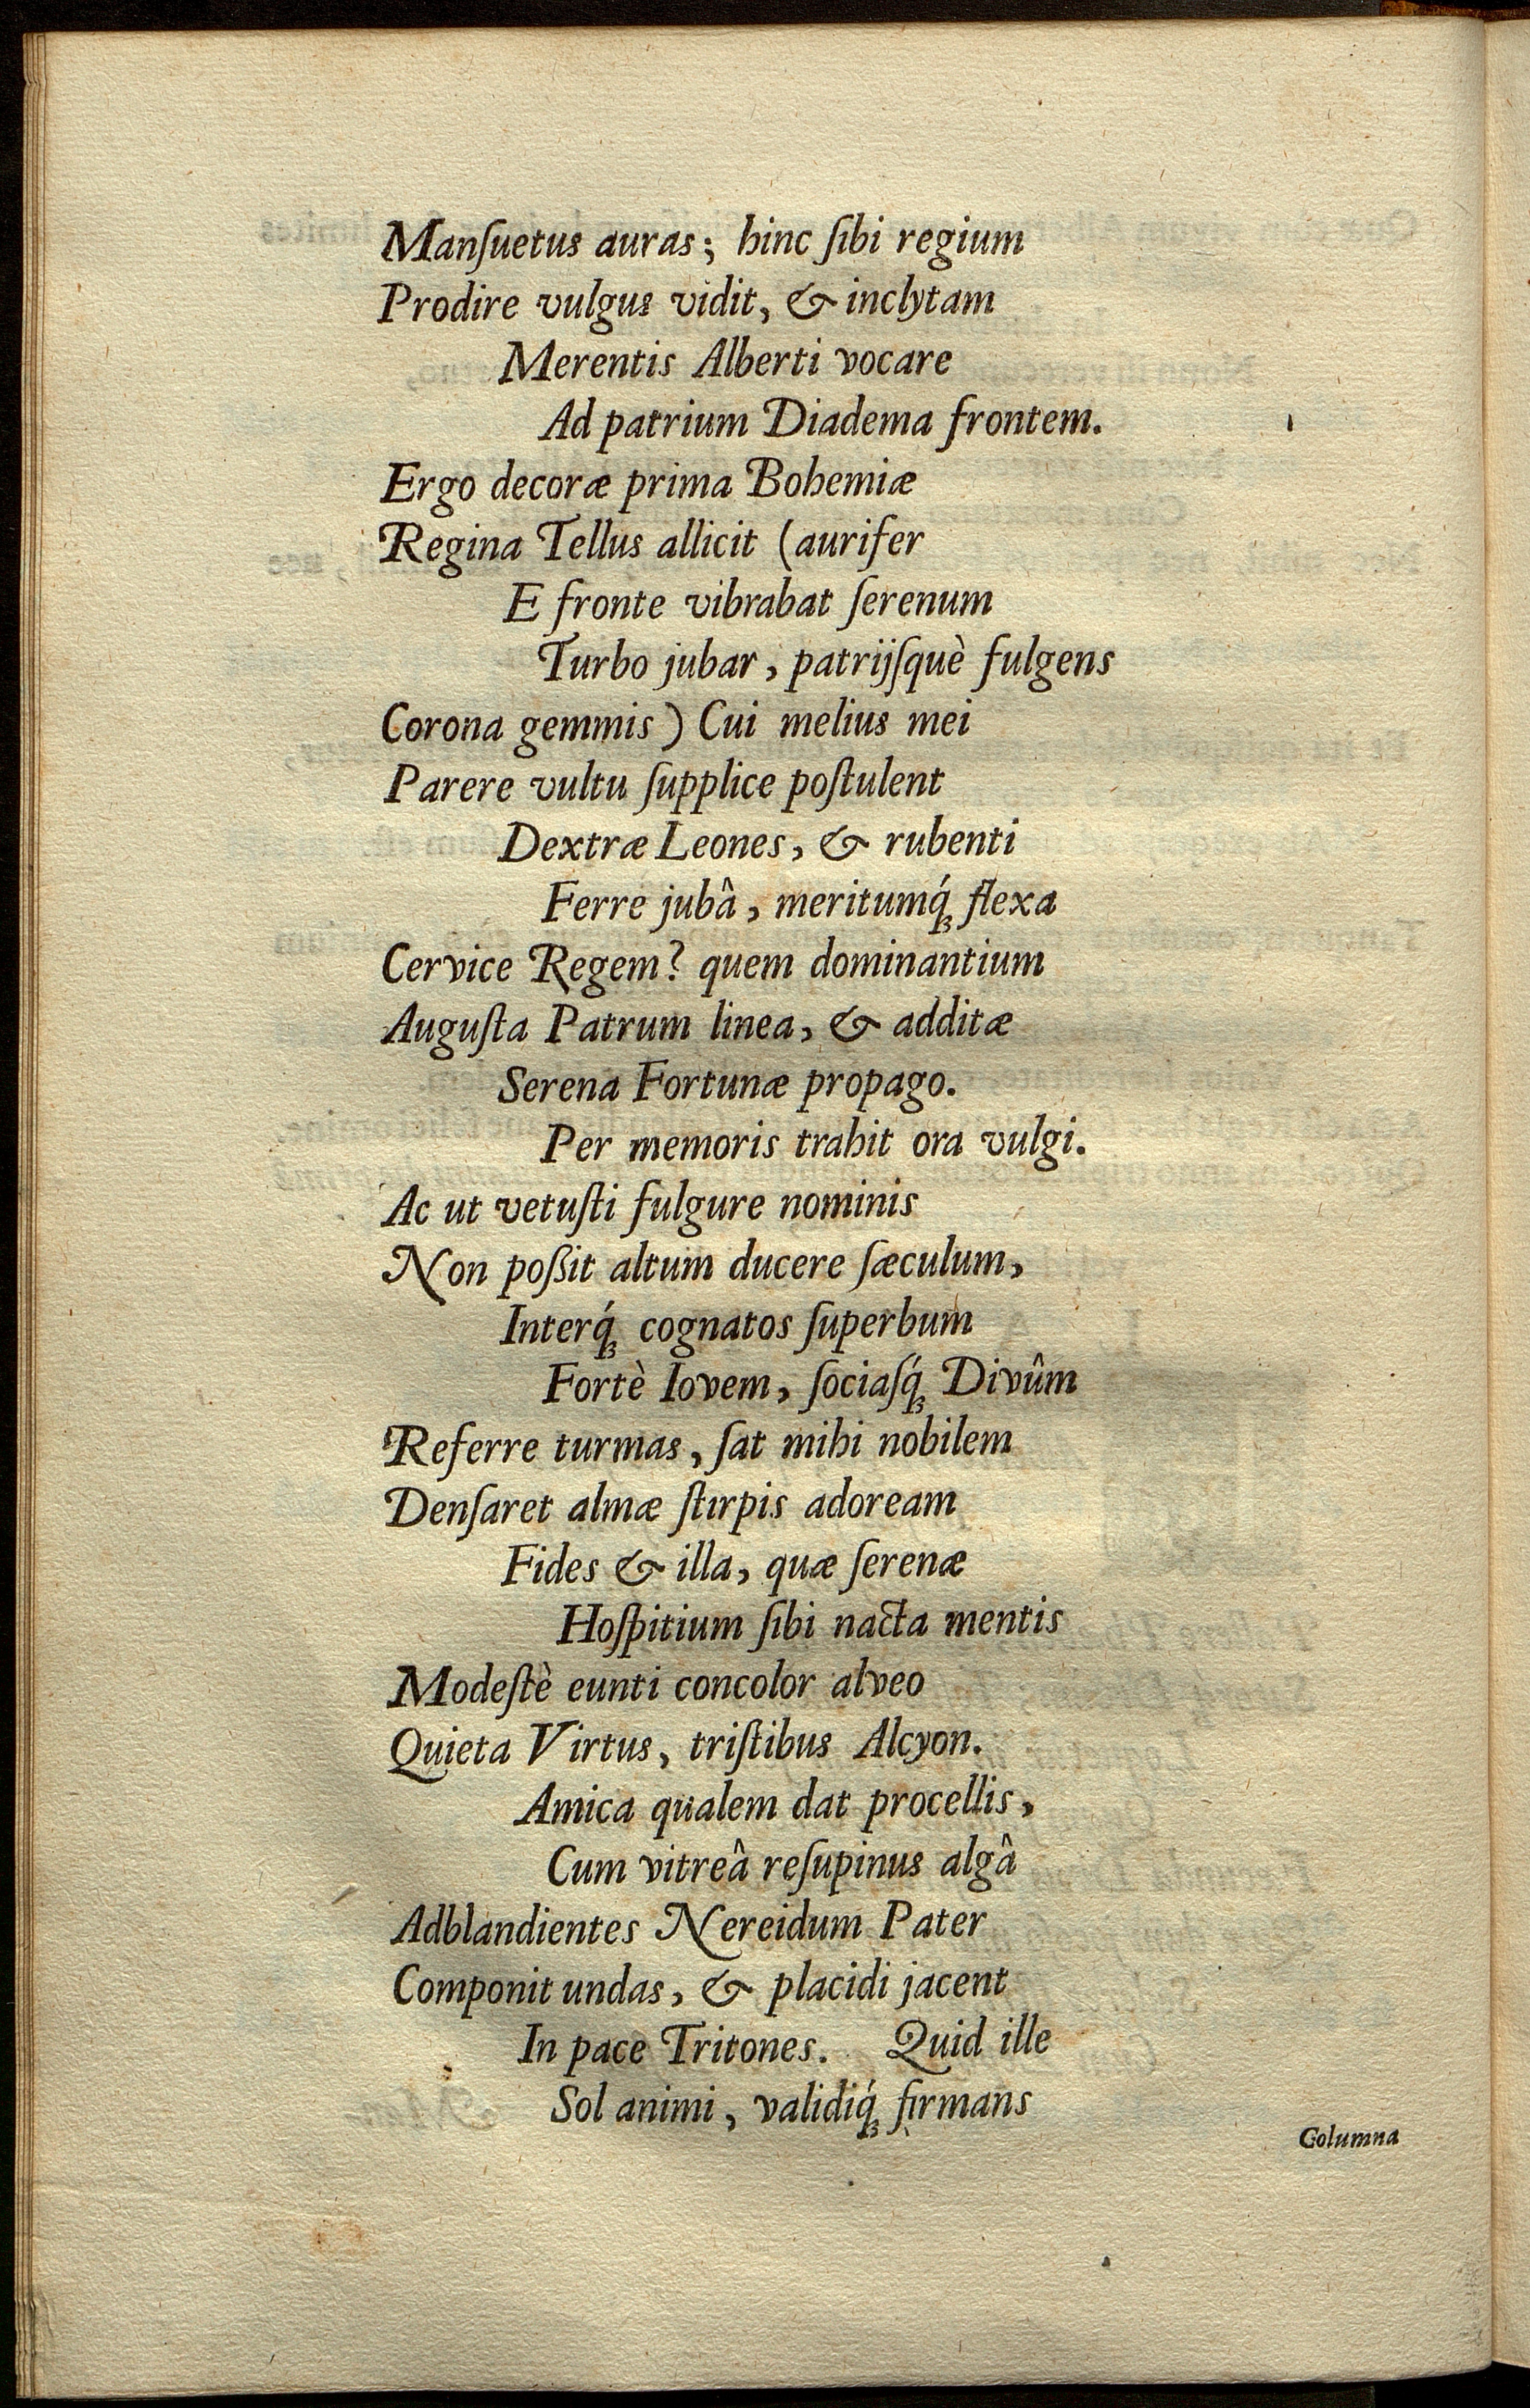 Manſuetus auras; hinc ſibi regium
Prodire vulgus vidit, & inclytam
Merentis Alberti vocare
Ad patrium Diadema frontem.
Ergo decoræ prima Bohemiæ
Regina Tellus allicit (aurifer
E fronte vibrabat ſerenum
Turbo jubar, patrijſquè fulgens
Corona gemmis) Cui melius mei
Parere vultu ſupplice poſtulent
Dextræ Leones, & rubenti
Ferre jubâ, meritumq́ꝫ flexa
Cervice Regem? quem dominantium
Auguſta Patrum linea, & additæ
Serena Fortunæ propago.
Per memoris trahit ora vulgi.
Ac ut vetuſti fulgure nominis
Non poßit altum ducere ſæculum,
Interq́ꝫ cognatos ſuperbum
Fortè Iovem, ſociaſq́ꝫ Divûm
Referre turmas, ſat mihi nobilem
Denſaret almæ ſtirpis adoream
Fides & illa, quæ ſerenæ
Hoſpitium ſibi nacta mentis
Modeſtè eunti concolor alveo
Quieta Virtus, triſtibus Alcyon.
Amica qualem dat procellis,
Cum vitreâ reſupinus algâ
Adblandientes Nereidum Pater
Componit undas, & placidi jacent
In pace Tritones. Quid ille
Sol animi, validiq́ꝫ firmans
Columna